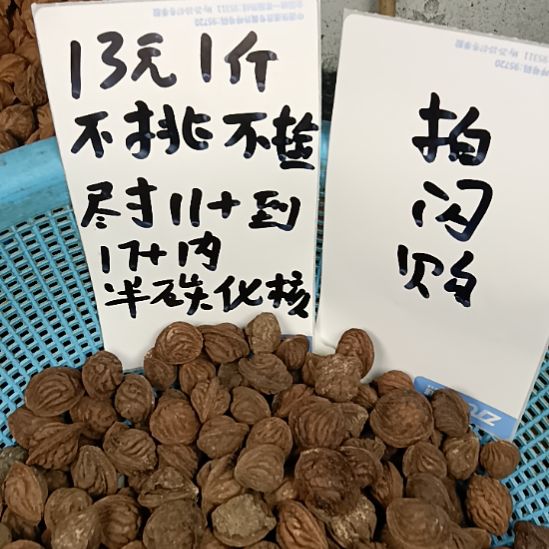 13元1斤
不挑不捡
尽寸11+到
17+内
半碳化核
拍
闪
购